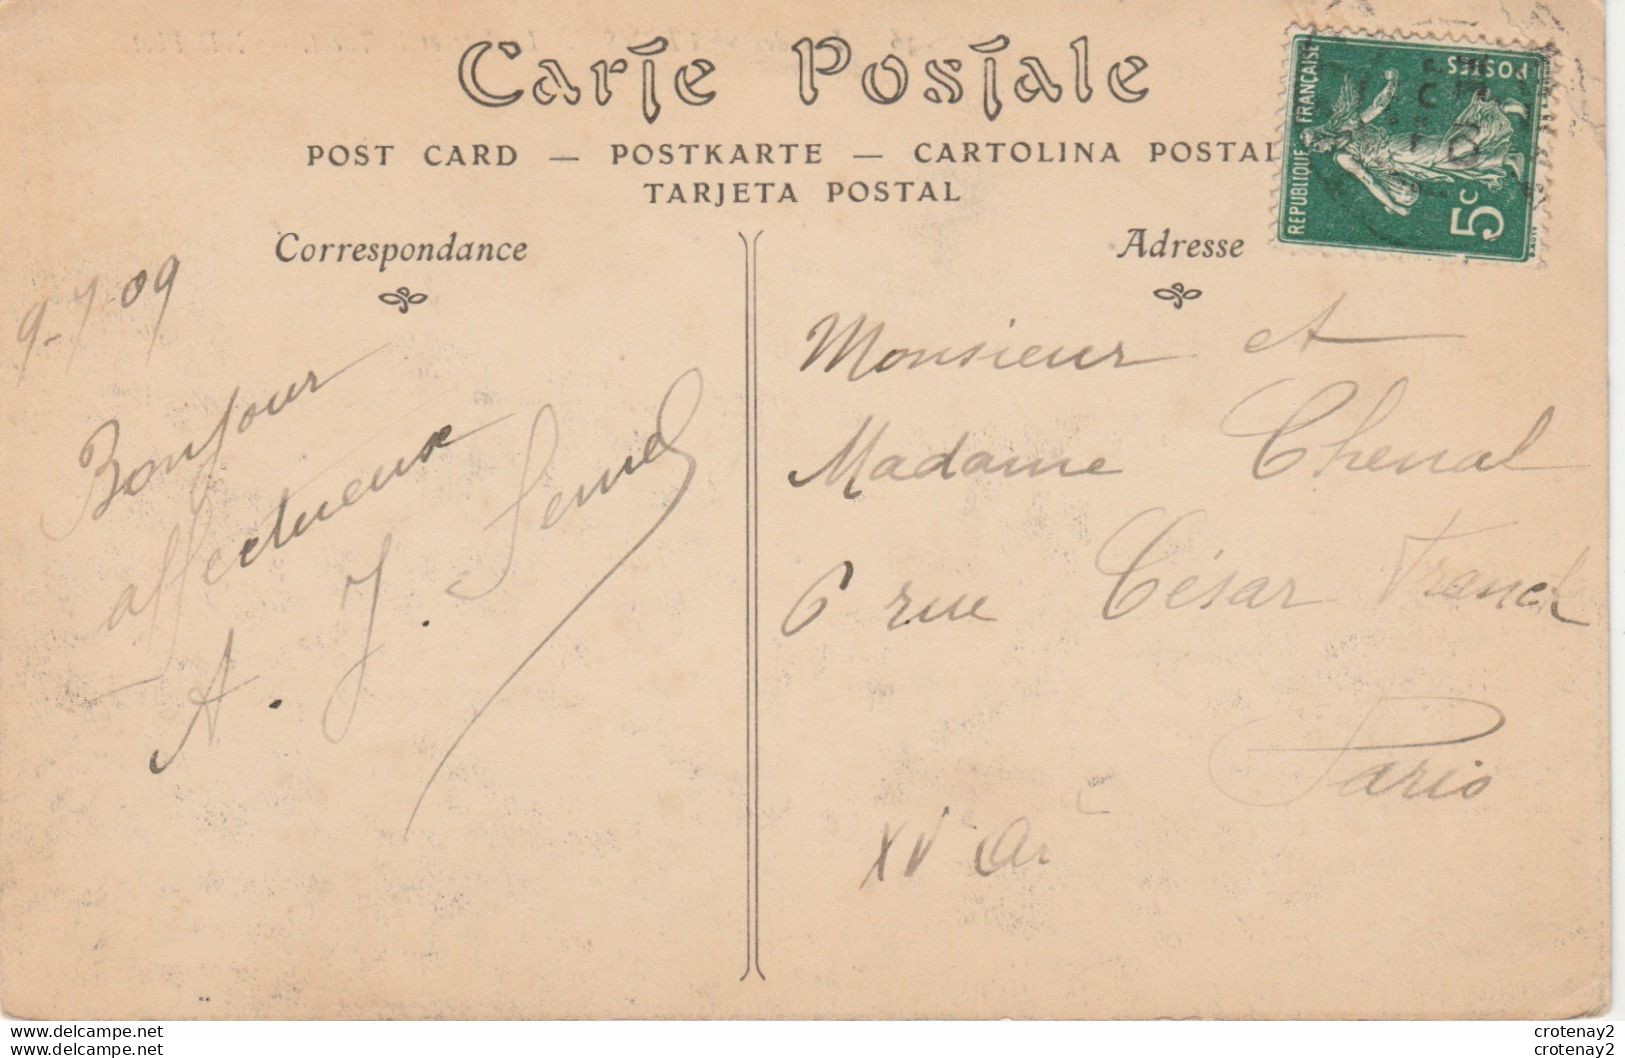 Carte Postale
POST CARD — POSTKARTE — CARTOLINA POSTAL
TARJETA POSTAL
Correspondance
9-7-09
Bonjour
affectueux
A. J.
Adresse
Monsieur et
Madame Chenal
6 rue César Franck
Paris
XVe Art
RÉPUBLIQUE FRANÇAISE
POSTES
5c
www.delcampe.net
www.delcampe.net
crotenay2
crotenay2